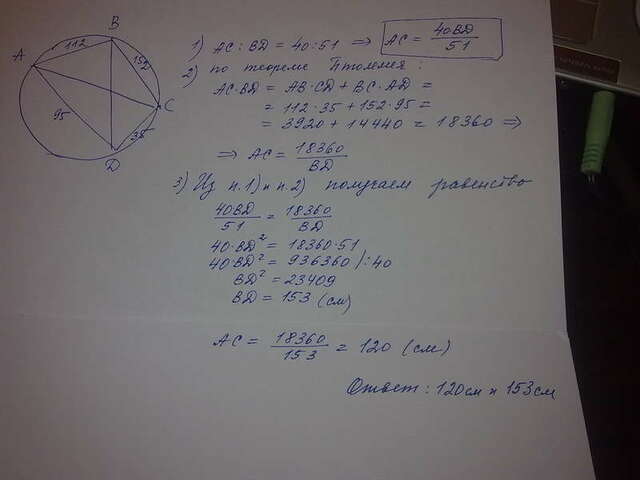 B
112
152
A
C
95
35
D
1) AC : BD = 40 : 51 ⇒ AC = 40BD/51
2) по теореме Птолемея:
AC·BD = AB·CD + BC·AD =
= 112·35 + 152·95 =
= 3920 + 14440 = 18360 ⇒
⇒ AC = 18360/BD
3) Из п.1) и п.2) получаем равенство
40BD/51 = 18360/BD
40·BD² = 18360·51
40·BD² = 936360 /:40
BD² = 23409
BD = 153 (см)
AC = 18360/153 = 120 (см)
Ответ: 120см и 153см